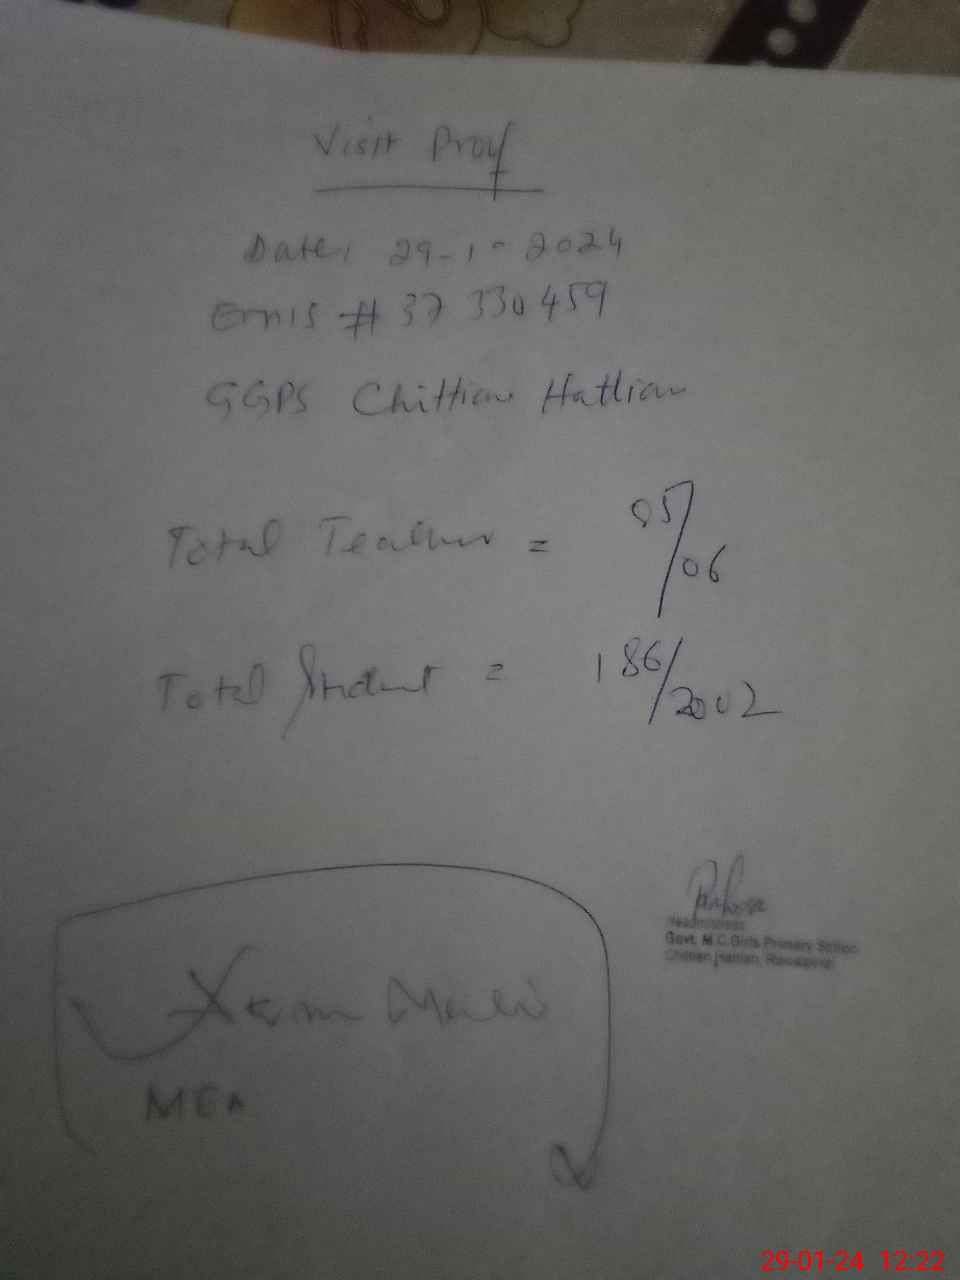 Visit Proof
Date: 29-1-2024
Emis # 37330459
GGPS Chittian Hatlian
Total Teacher = 05/06
Total Student = 186/2002
Headmistress
Govt. M.C. Girls Primary School
Chittian Hattian, Rawalpindi
MEA
29-01-24 12:22